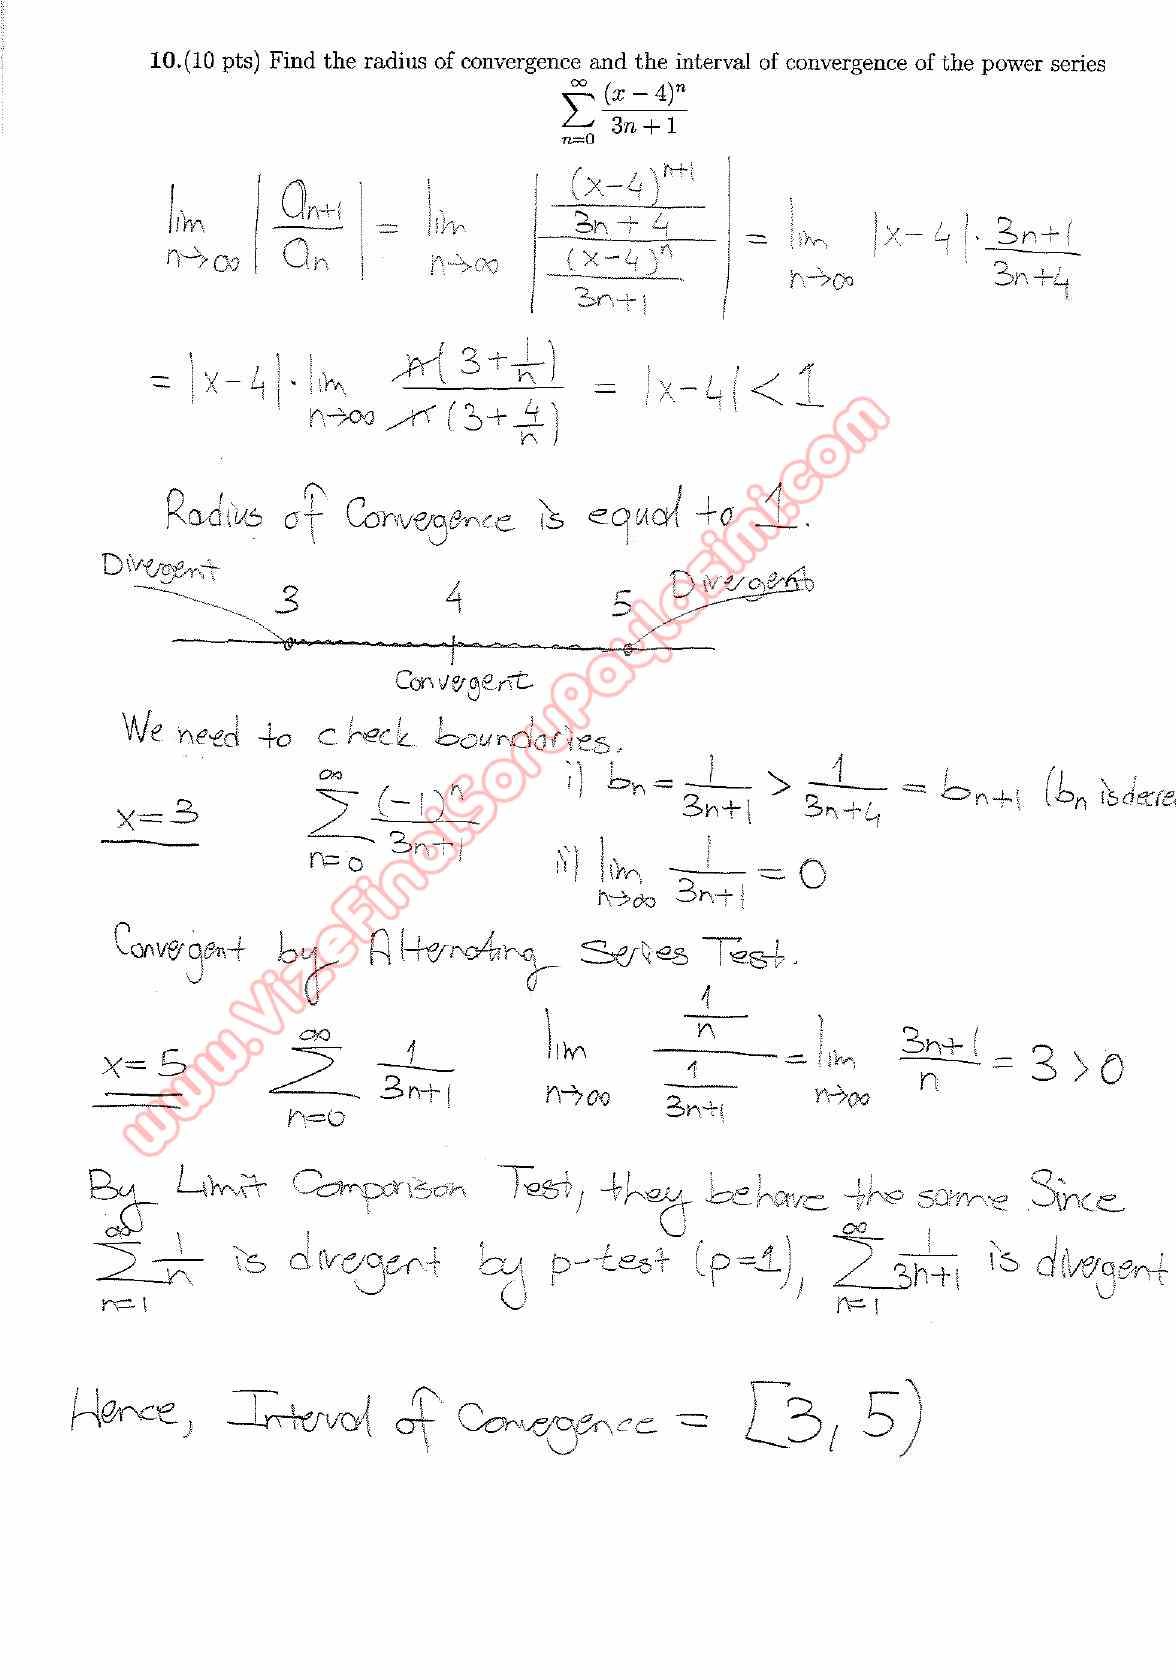 10.(10 pts) Find the radius of convergence and the interval of convergence of the power series
∑_{n=0}^{∞} (x − 4)^n / (3n + 1)
lim_{n→∞} |a_{n+1} / a_n| = lim_{n→∞} |((x-4)^{n+1} / (3n+4)) / ((x-4)^n / (3n+1))| = lim_{n→∞} |x-4| · (3n+1)/(3n+4)
= |x-4| · lim_{n→∞} n(3+1/n) / n(3+4/n) = |x-4| < 1
Radius of Convergence is equal to 1.
Divergent 3 4 5 Divergent
Convergent
We need to check boundaries.
x=3 ∑_{n=0}^{∞} (-1)^n / (3n+1) i) b_n = 1/(3n+1) > 1/(3n+4) = b_{n+1} (b_n is decre
ii) lim_{n→∞} 1/(3n+1) = 0
Convergent by Alternating Series Test.
x=5 ∑_{n=0}^{∞} 1/(3n+1) lim_{n→∞} (1/n) / (1/(3n+1)) = lim_{n→∞} (3n+1)/n = 3 > 0
By Limit Comparison Test, they behave the same Since
∑_{n=1}^{∞} 1/n is divegent by p-test (p=1), ∑_{n=1}^{∞} 1/(3n+1) is divegent
Hence, Interval of Convergence = [3, 5)
www.VizeFinalSoruPaylasimi.com